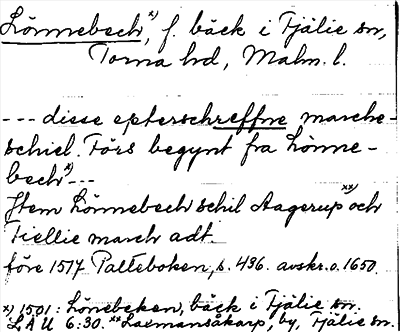 Lönnebech,ˣ⁾ f. bäck i Fjälie sn,
Torna hd, Malm. l.
--- disse epterschreffne marche-
schiel. Förs begynt fra Lönne-
bechˣ⁾---
Jtem Lönnebech schil Aagerupˣˣ⁾ och
Fiellie march adt.
före 1517 Palteboken, s. 436. avskr. o. 1650.
x) 1501: Lönebeken, bäck i Fjälie sn.
LAU 6:30. ˣˣ Laxmansåkarp, by, Fjälie sn.